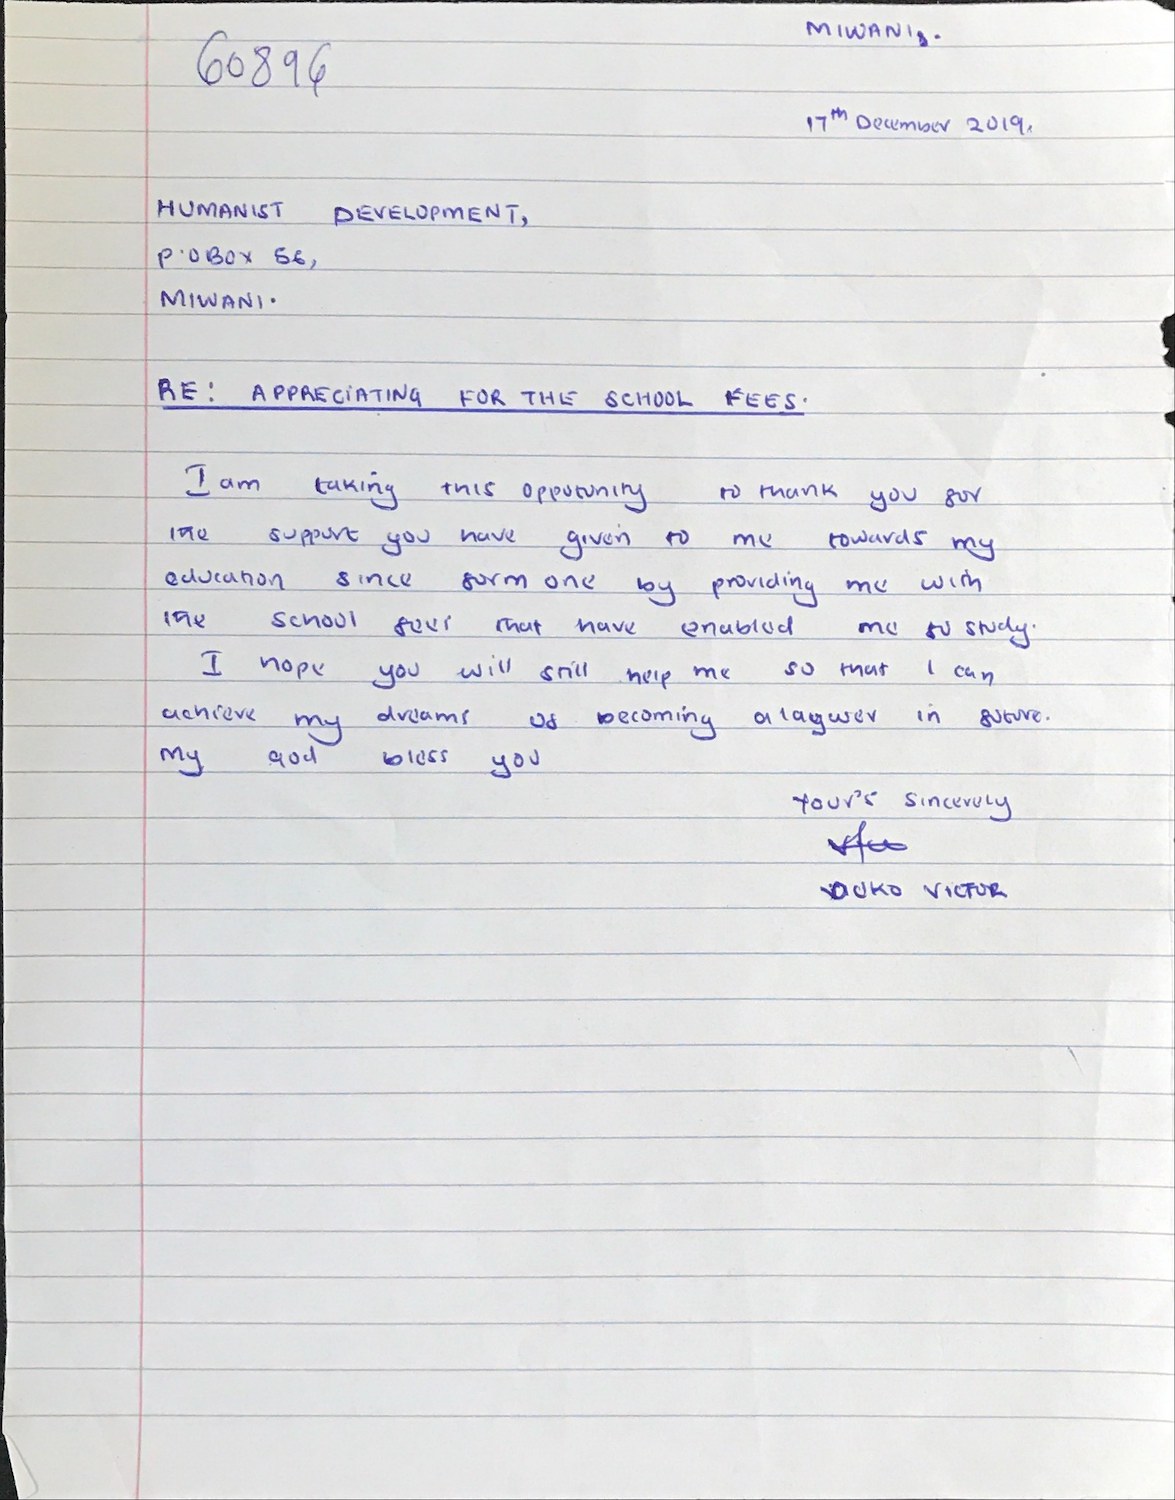 MIWANI.
60896
17th December 2019.
HUMANIST DEVELOPMENT,
P.O BOX 56,
MIWANI.
RE: APPRECIATING FOR THE SCHOOL FEES.
I am taking this oppotunity to thank you for
the support you have given to me towards my
education since form one by providing me with
the school fees that have enabled me to study.
I hope you will still help me so that I can
achieve my dreams of becoming a lagwer in future.
My god bless you
Your's Sincerely
VICTOR